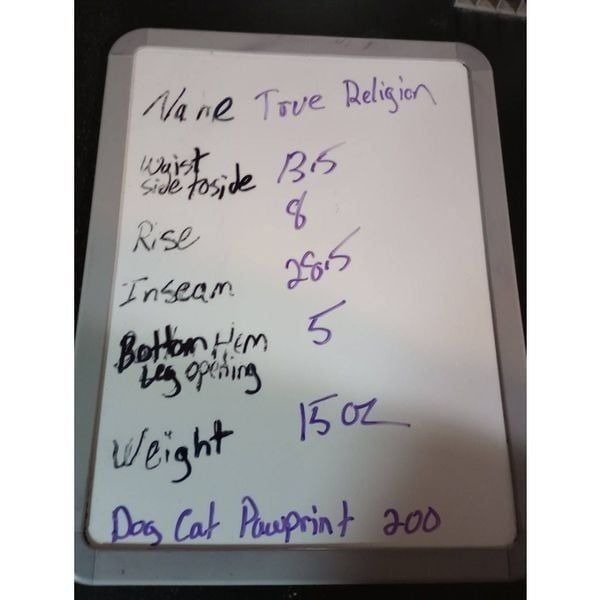 Name True Religion
Waist side to side 13.5
Rise 8
Inseam 28.5
Bottom Hem Leg opening 5
Weight 15 oz
Dog Cat Pawprint 200